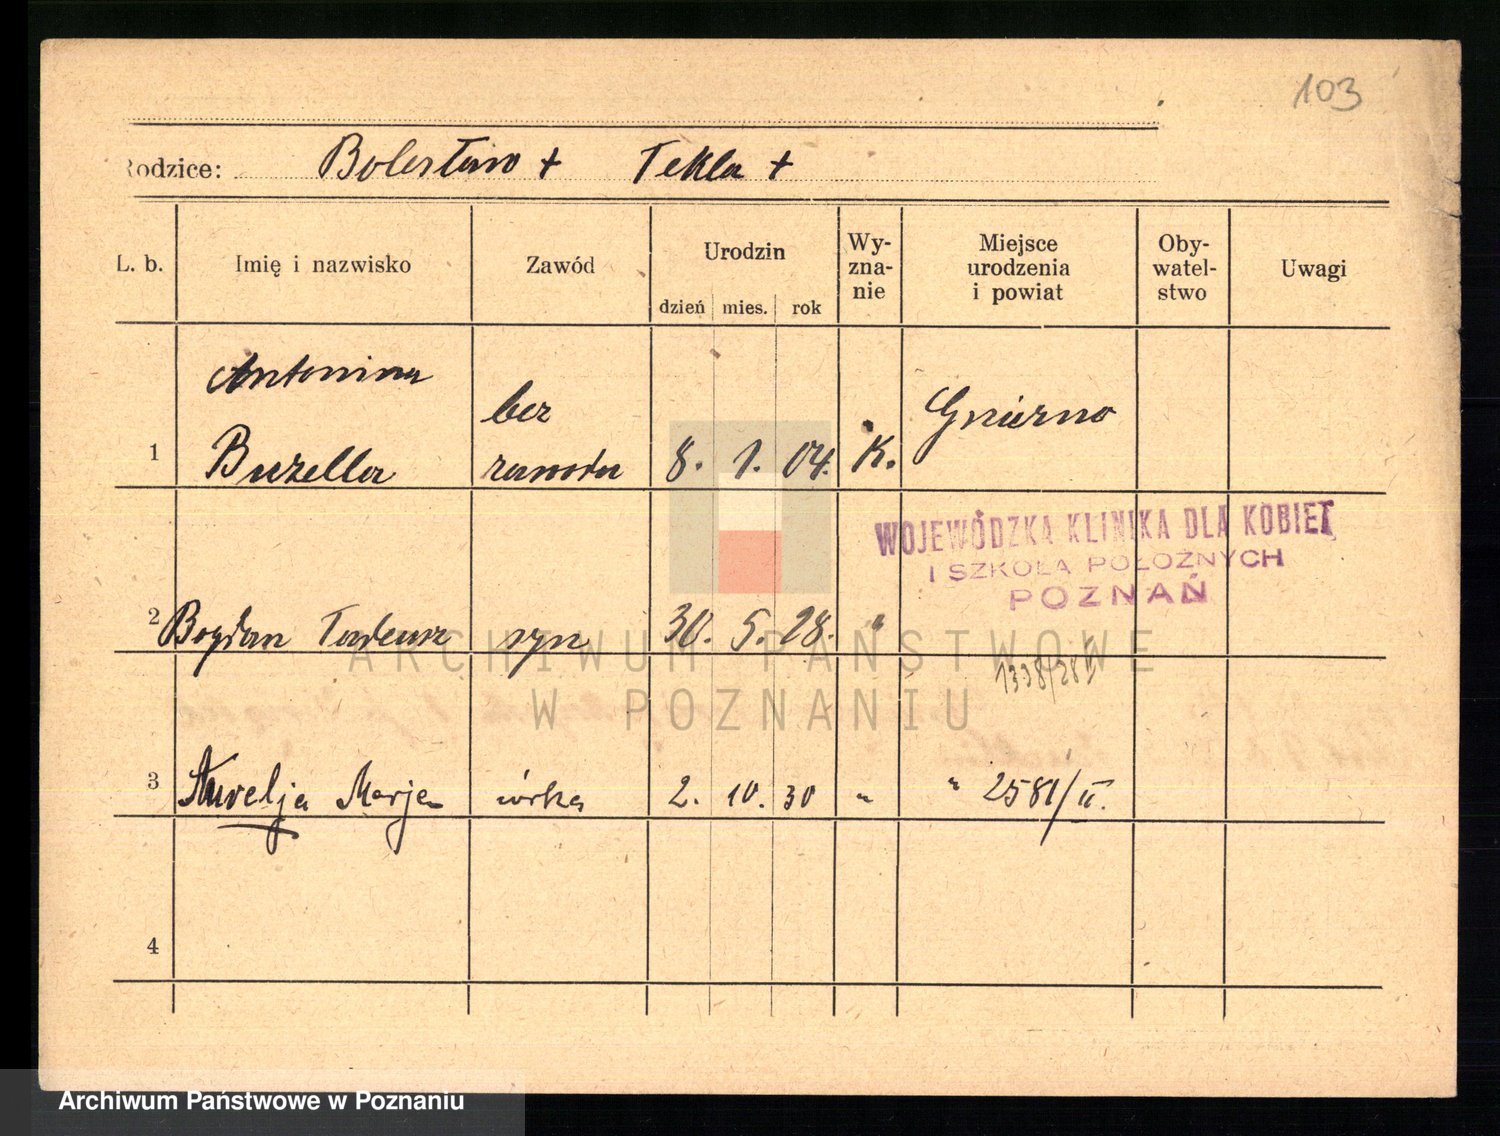 103
Rodzice: Bolesław + Tekla +
L. b. Imię i nazwisko Zawód Urodzin Wy-zna-nie Miejsce urodzenia i powiat Oby-watel-stwo Uwagi
dzień mies. rok
Antonina
bez
Gniezno
1 Buzella zawodu 8. 1. 04. K.
WOJEWÓDZKA KLINIKA DLA KOBIET
I SZKOŁA POŁOŻNYCH
POZNAŃ
2 Bogdan Tadeusz syn 30. 5. 28. "
ARCHIWUM PAŃSTWOWE
1338/28 II
W POZNANIU
3 Aurelja Marja córka 2. 10. 30 " " 2581/II.
4
Archiwum Państwowe w Poznaniu